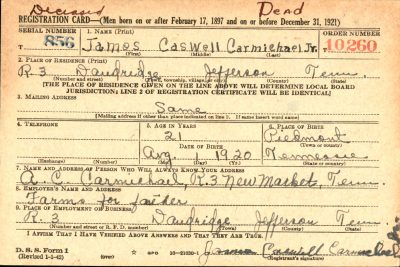 Deceased Dead
REGISTRATION CARD—(Men born on or after February 17, 1897 and on or before December 31, 1921)
SERIAL NUMBER 1. NAME (Print) ORDER NUMBER
T 856 James Caswell Carmichael Jr. 10260
(First) (Middle) (Last)
2. PLACE OF RESIDENCE (Print)
R. 3 Dandridge Jefferson Tenn.
(Number and street) (Town, township, village, or city) (County) (State)
[THE PLACE OF RESIDENCE GIVEN ON THE LINE ABOVE WILL DETERMINE LOCAL BOARD
JURISDICTION; LINE 2 OF REGISTRATION CERTIFICATE WILL BE IDENTICAL]
3. MAILING ADDRESS
Same
[Mailing address if other than place indicated on line 2. If same insert word same]
4. TELEPHONE 5. AGE IN YEARS 6. PLACE OF BIRTH
21 Piedmont
DATE OF BIRTH (Town or county)
Aug 1920 Tennessee
(Exchange) (Number) (Mo.) (Day) (Yr.) (State or country)
7. NAME AND ADDRESS OF PERSON WHO WILL ALWAYS KNOW YOUR ADDRESS
Carmichael, R. 3 New Market, Tenn.
8. EMPLOYER'S NAME AND ADDRESS
Farms for father
9. PLACE OF EMPLOYMENT OR BUSINESS
R. 3 Dandridge Jefferson Tenn
(Number and street or R. F. D. number) (Town) (County) (State)
I AFFIRM THAT I HAVE VERIFIED ABOVE ANSWERS AND THAT THEY ARE TRUE.
D. S. S. Form 1 James Caswell Carmichael
(Revised 1-1-42) (over) 16—21630-2 (Registrant's signature)